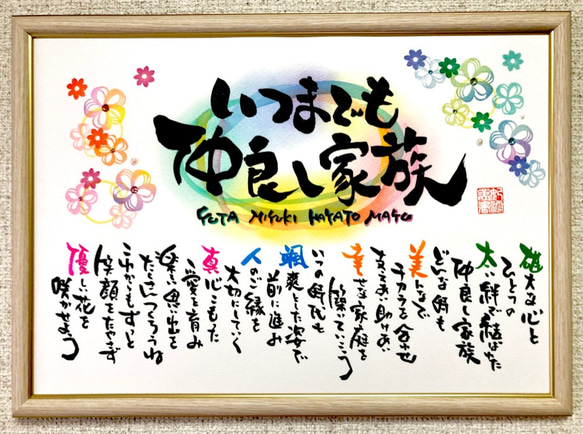 いつまでも
仲良し家族
YUTA MIYUKI HAYATO MAYU
雄大な心と
ひとつの
太い絆で結ばれた
仲良し家族
どんな時も
美んなで
チカラを合わせ
ささえあい助けあい
幸せな家庭を
築いていこう
いつの時代も
颯爽とした姿で
前に進み
人のご縁を
大切にしていく
真心こもった
愛を育み
楽しい思い出を
たくさんつくろうね
これからもずっと
笑顔をたやさず
優しい花を
咲かせよう